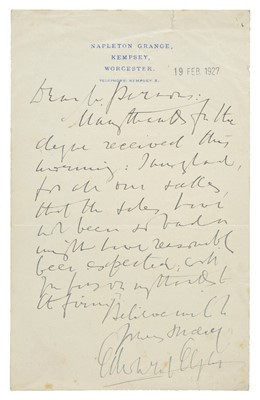 NAPLETON GRANGE,
KEMPSEY,
WORCESTER.
TELEPHONE KEMPSEY
19 FEB 1927
Dear Mr Parsons:
Many thanks for the
cheque received this
morning: I am glad,
for all our sakes,
that the sales have
not been so bad as
might have reasonably
been expected, with
my thanks to
the firm
Believe me to be
Yours sincly
Edward Elgar